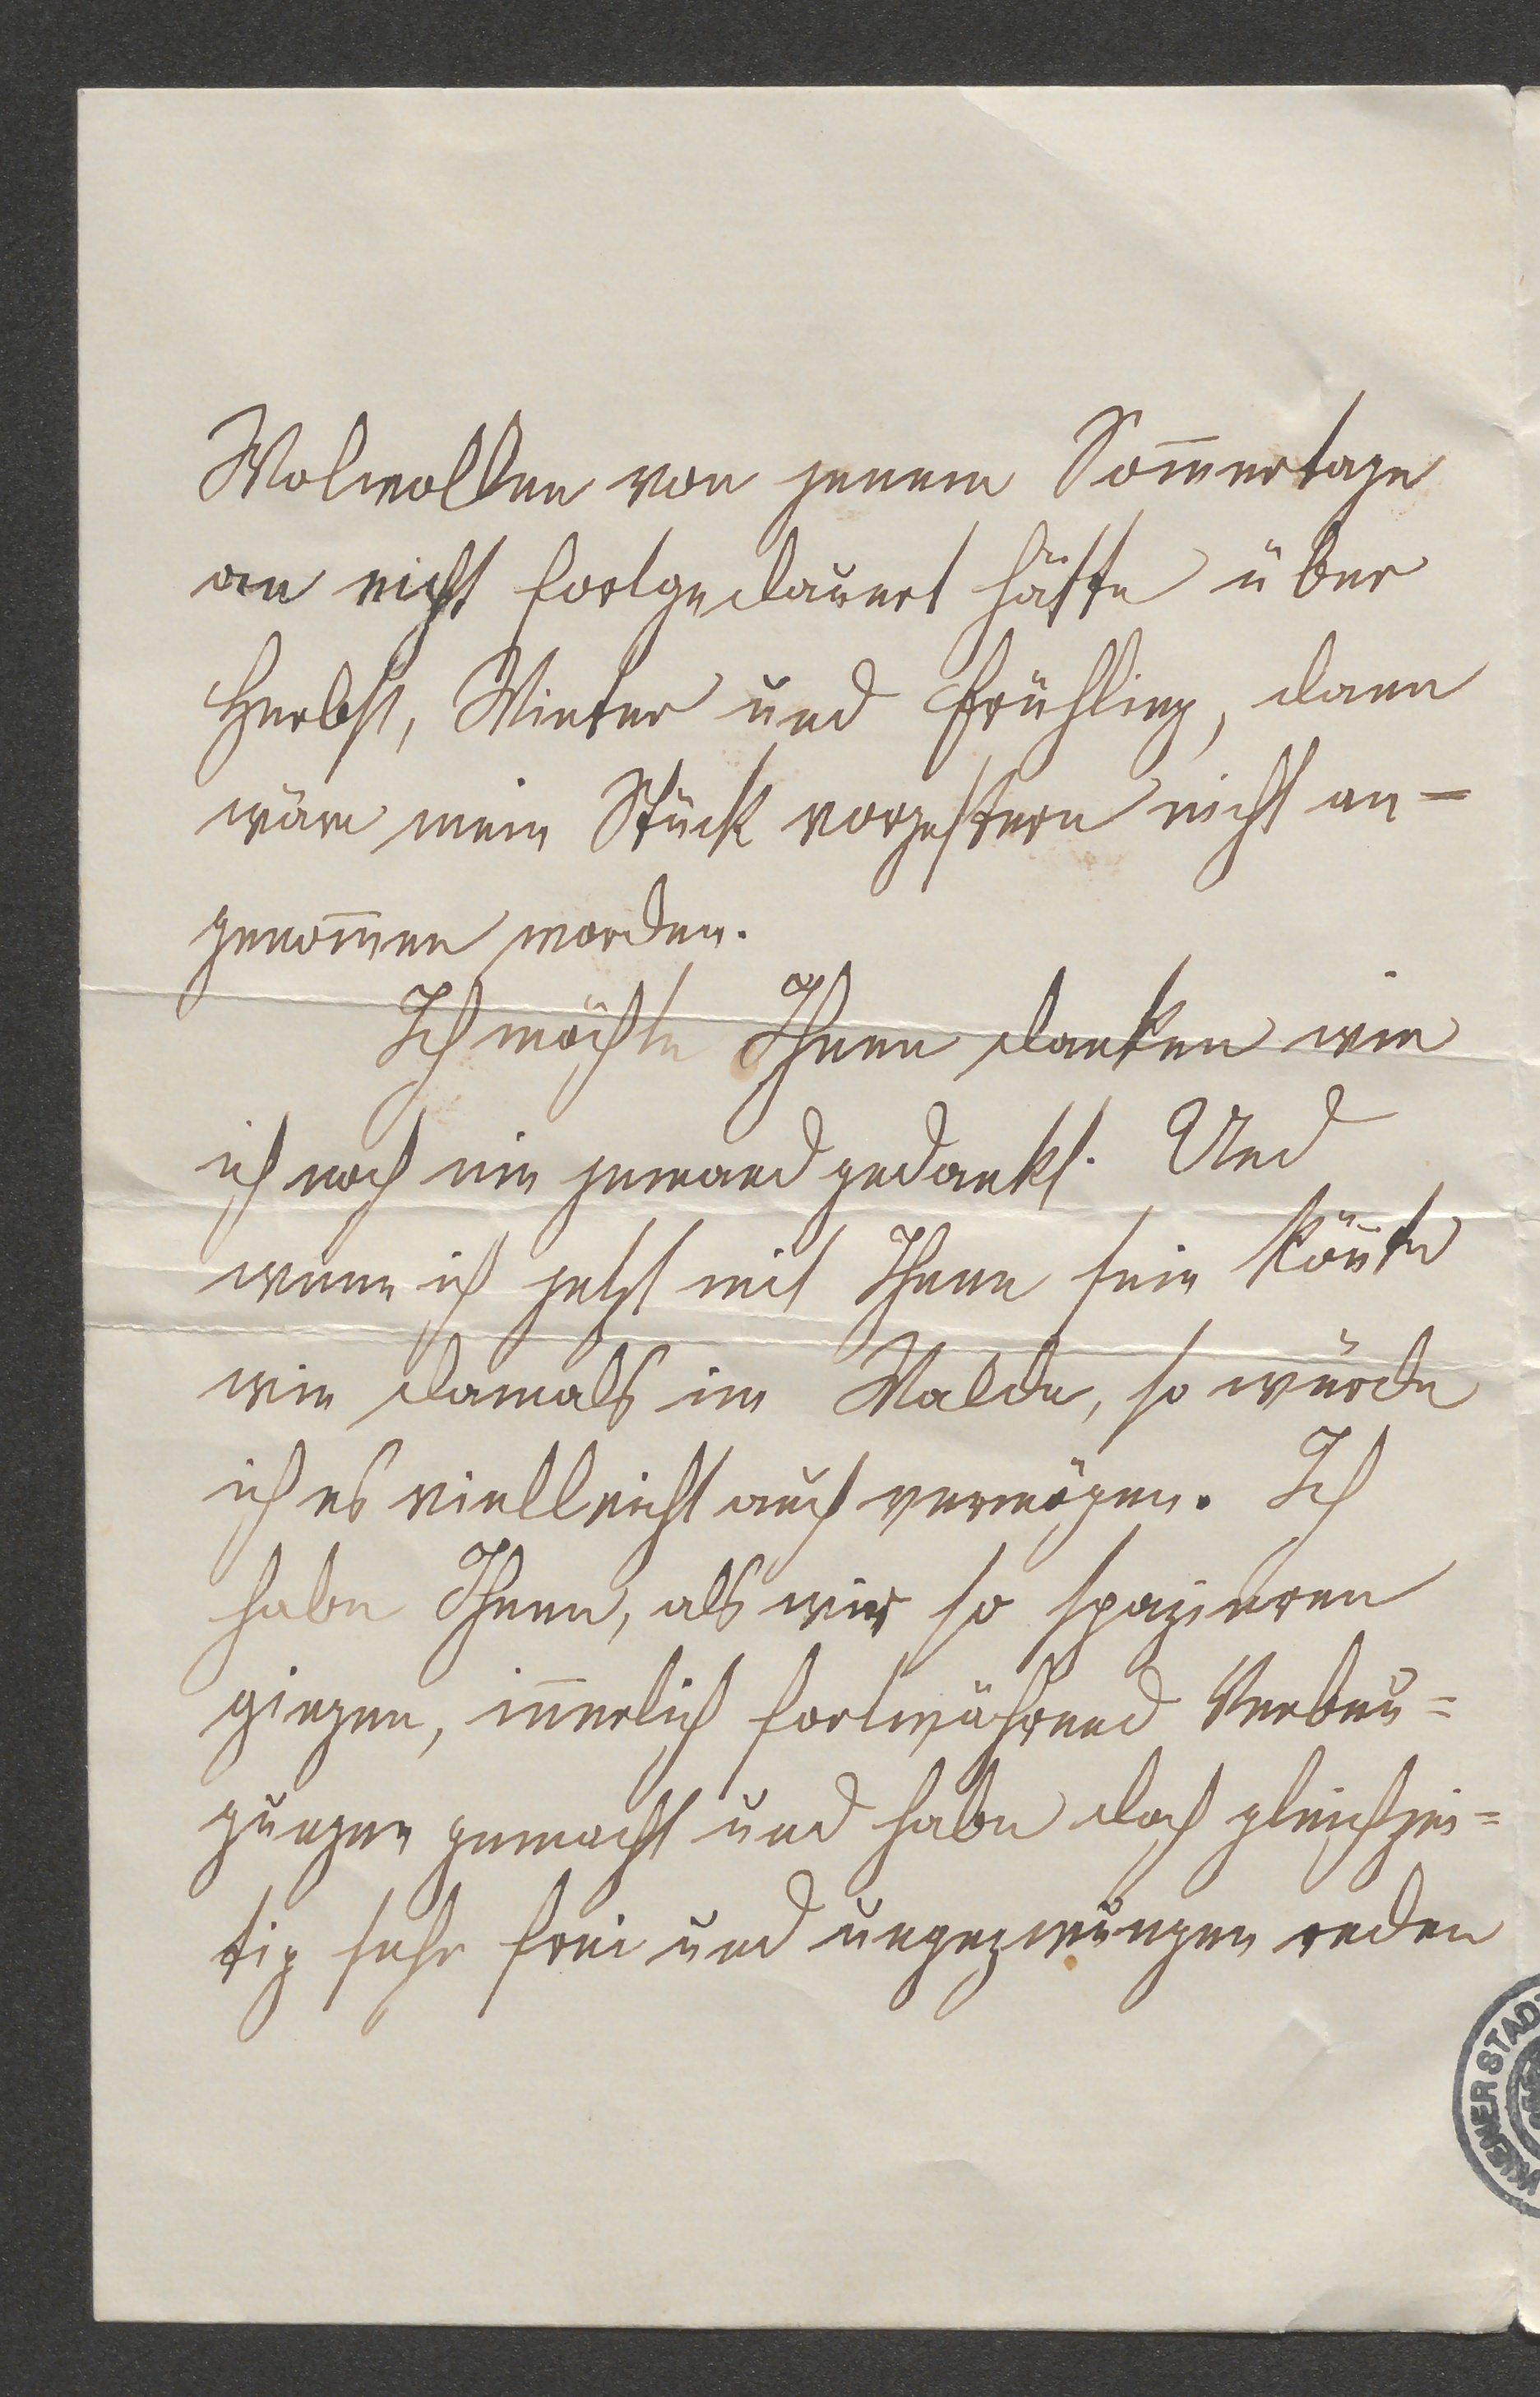 Wolwollen von jenem Som̅ertage
an nicht fortgedauert hätte über
Herbst, Winter und Frühling, dann
wäre mein Stück vorgestern nicht an=
genom̅en worden.
Ich möchte Ihnen danken wie
ich noch nie jemand gedankt. Und
wenn ich jetzt mit Ihnen sein kön̅te
wie damals im Walde, so würde
ich es vielleicht auch vermögen. Ich
habe Ihnen, als wir so spazieren
giengen, in̅erlich fortwährend Verbeu=
gungen gemacht und habe doch gleichzei=
tig sehr frei und ungezwungen reden
WIENER STAD